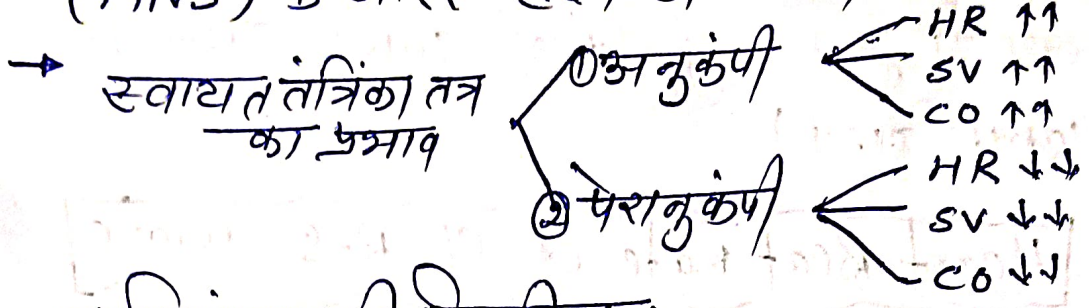 → स्वायत तंत्रिंका तत्र
का प्रभाव
① अनुकंपी
HR ↑↑
SV ↑↑
CO ↑↑
② पेरानुकंपी
HR ↓↓
SV ↓↓
CO ↓↓